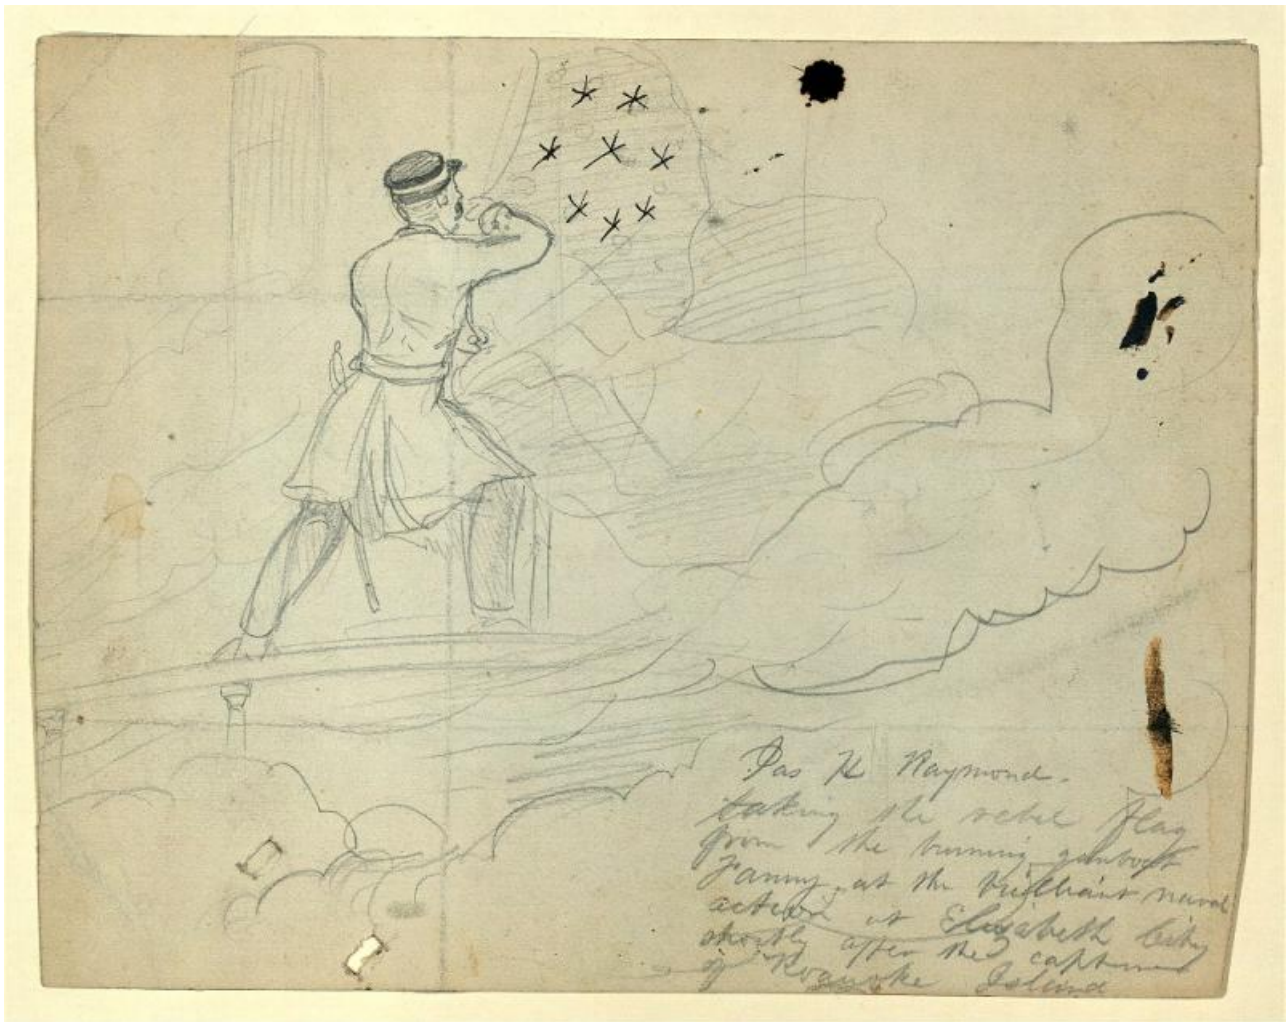 Jas H Raymond.
taking the rebel flag
from the burning gunboat
Fanny, at the brilliant naval
action at Elizabeth City
shortly after the capture
of Roanoke Island